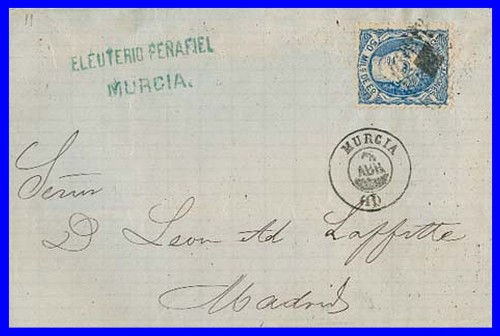 11
ELEUTERIO PEÑAFIEL
MURCIA.
50 MIL
MURCIA
ABR
(11)
Señor
D Leon Ad Laffitte
Madrid